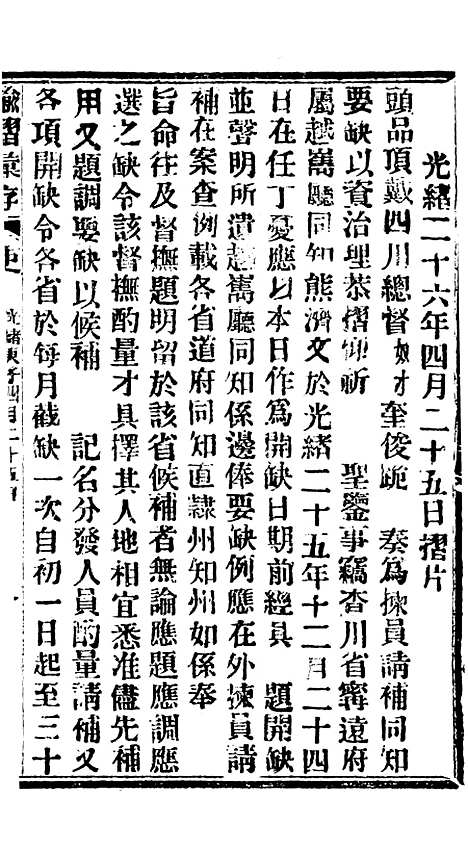 光緒二十六年四月二十五日摺片
頭品頂戴四川總督奴才奎俊跪 奏爲揀員請補同知
要缺以資治理恭摺仰祈 聖鑒事竊查川省寗遠府
屬越嶲廳同知熊濟文於光緒二十五年十二月二十四
日在任丁憂應以本日作爲開缺日期前經具 題開缺
並聲明所遺越嶲廳同知係邊俸要缺例應在外揀員請
補在案查例載各省道府同知直隸州知州如係奉
旨命往及督撫題明留於該省候補者無論應題應調應
選之缺令該督撫酌量才具擇其人地相宜悉准儘先補
用又題調要缺以候補 記名分發人員酌量請補又
各項開缺令各省於每月截缺一次自初一日起至三十
諭摺彙存 光緒庚子四月二十五日